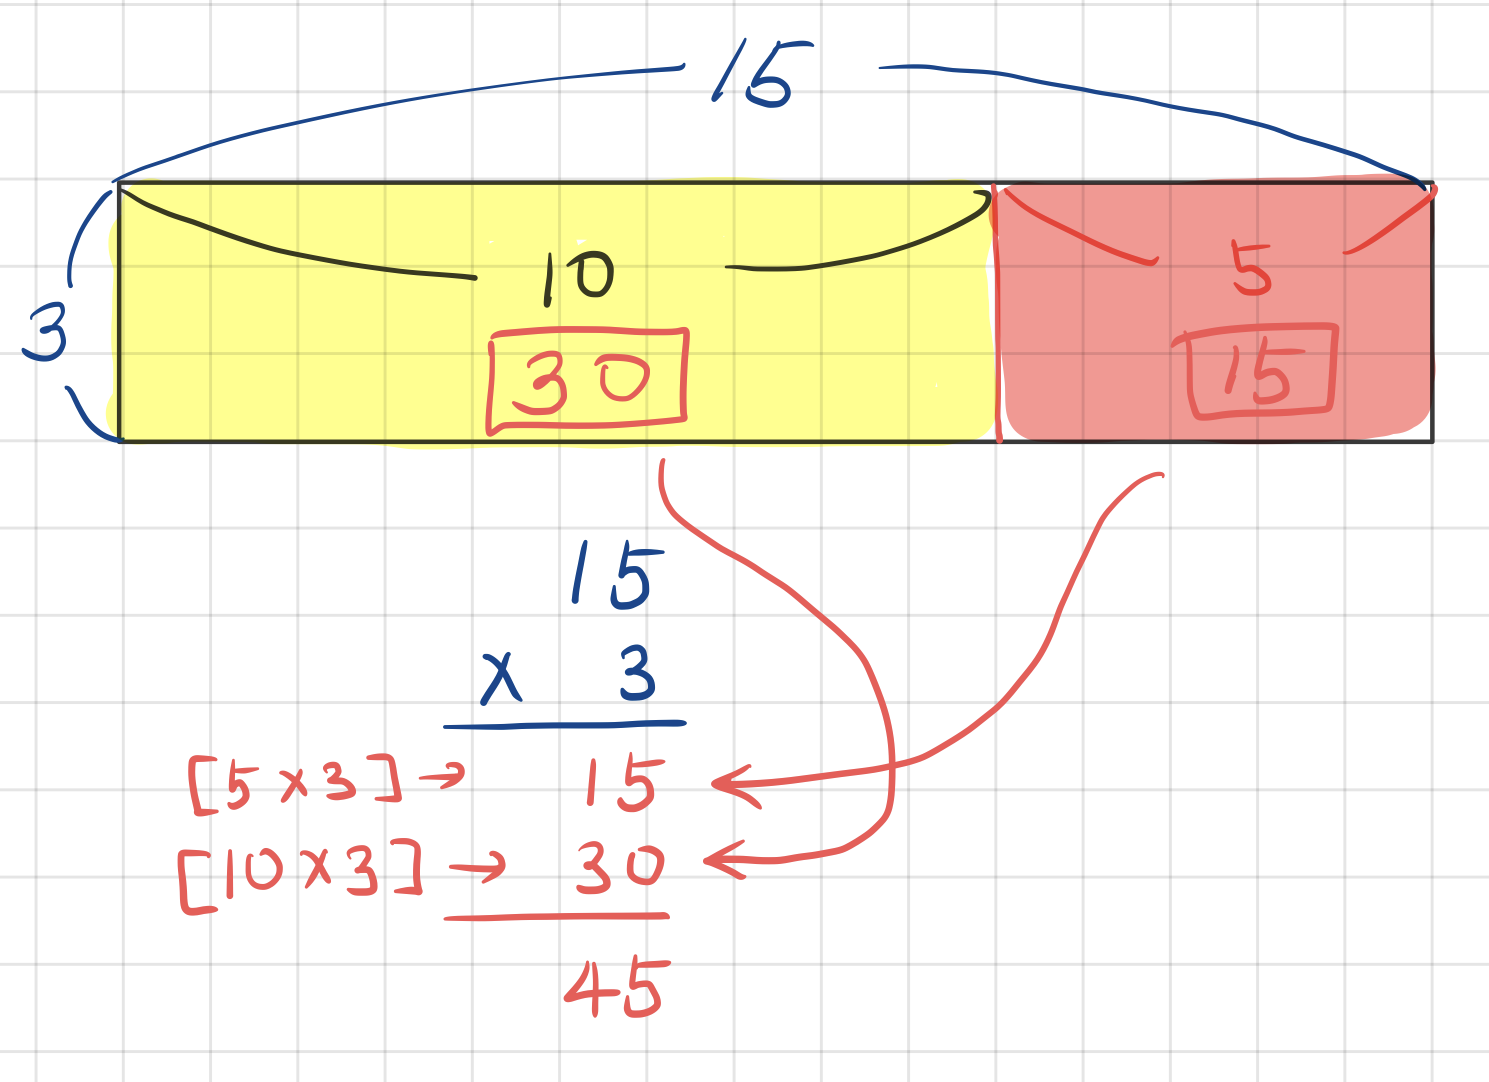 15
3
10
5
30
15
15
x 3
[5 x 3] → 15
[10 x 3] → 30
45